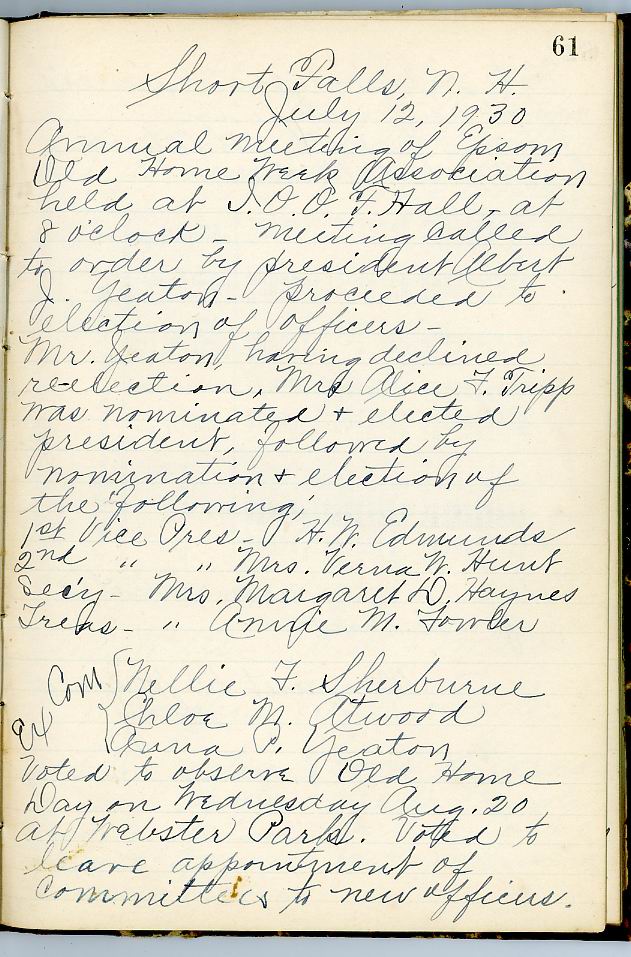 61
Short Falls, N. H.
July 12, 1930
Annual meeting of Epsom
Old Home Week Association
held at I.O.O.F. Hall, at
8 o'clock - meeting called
to order by president Albert
J. Yeaton - proceeded to
election of officers -
Mr. Yeaton, having declined
re-election, Mrs Alice F. Tripp
was nominated & elected
president, followed by
nomination & election of
the following;
1st Vice Pres - H. W. Edmunds
2nd " " Mrs. Verna W. Hunt
Sec'y - Mrs. Margaret D. Haynes
Treas - " Annie M. Fowler
Ex Com { Nellie F. Sherburne
Chloe M. Atwood
Anna P. Yeaton
Voted to observe Old Home
Day on Wednesday Aug. 20
at Webster Park. Voted to
leave appointment of
committees to new officers.